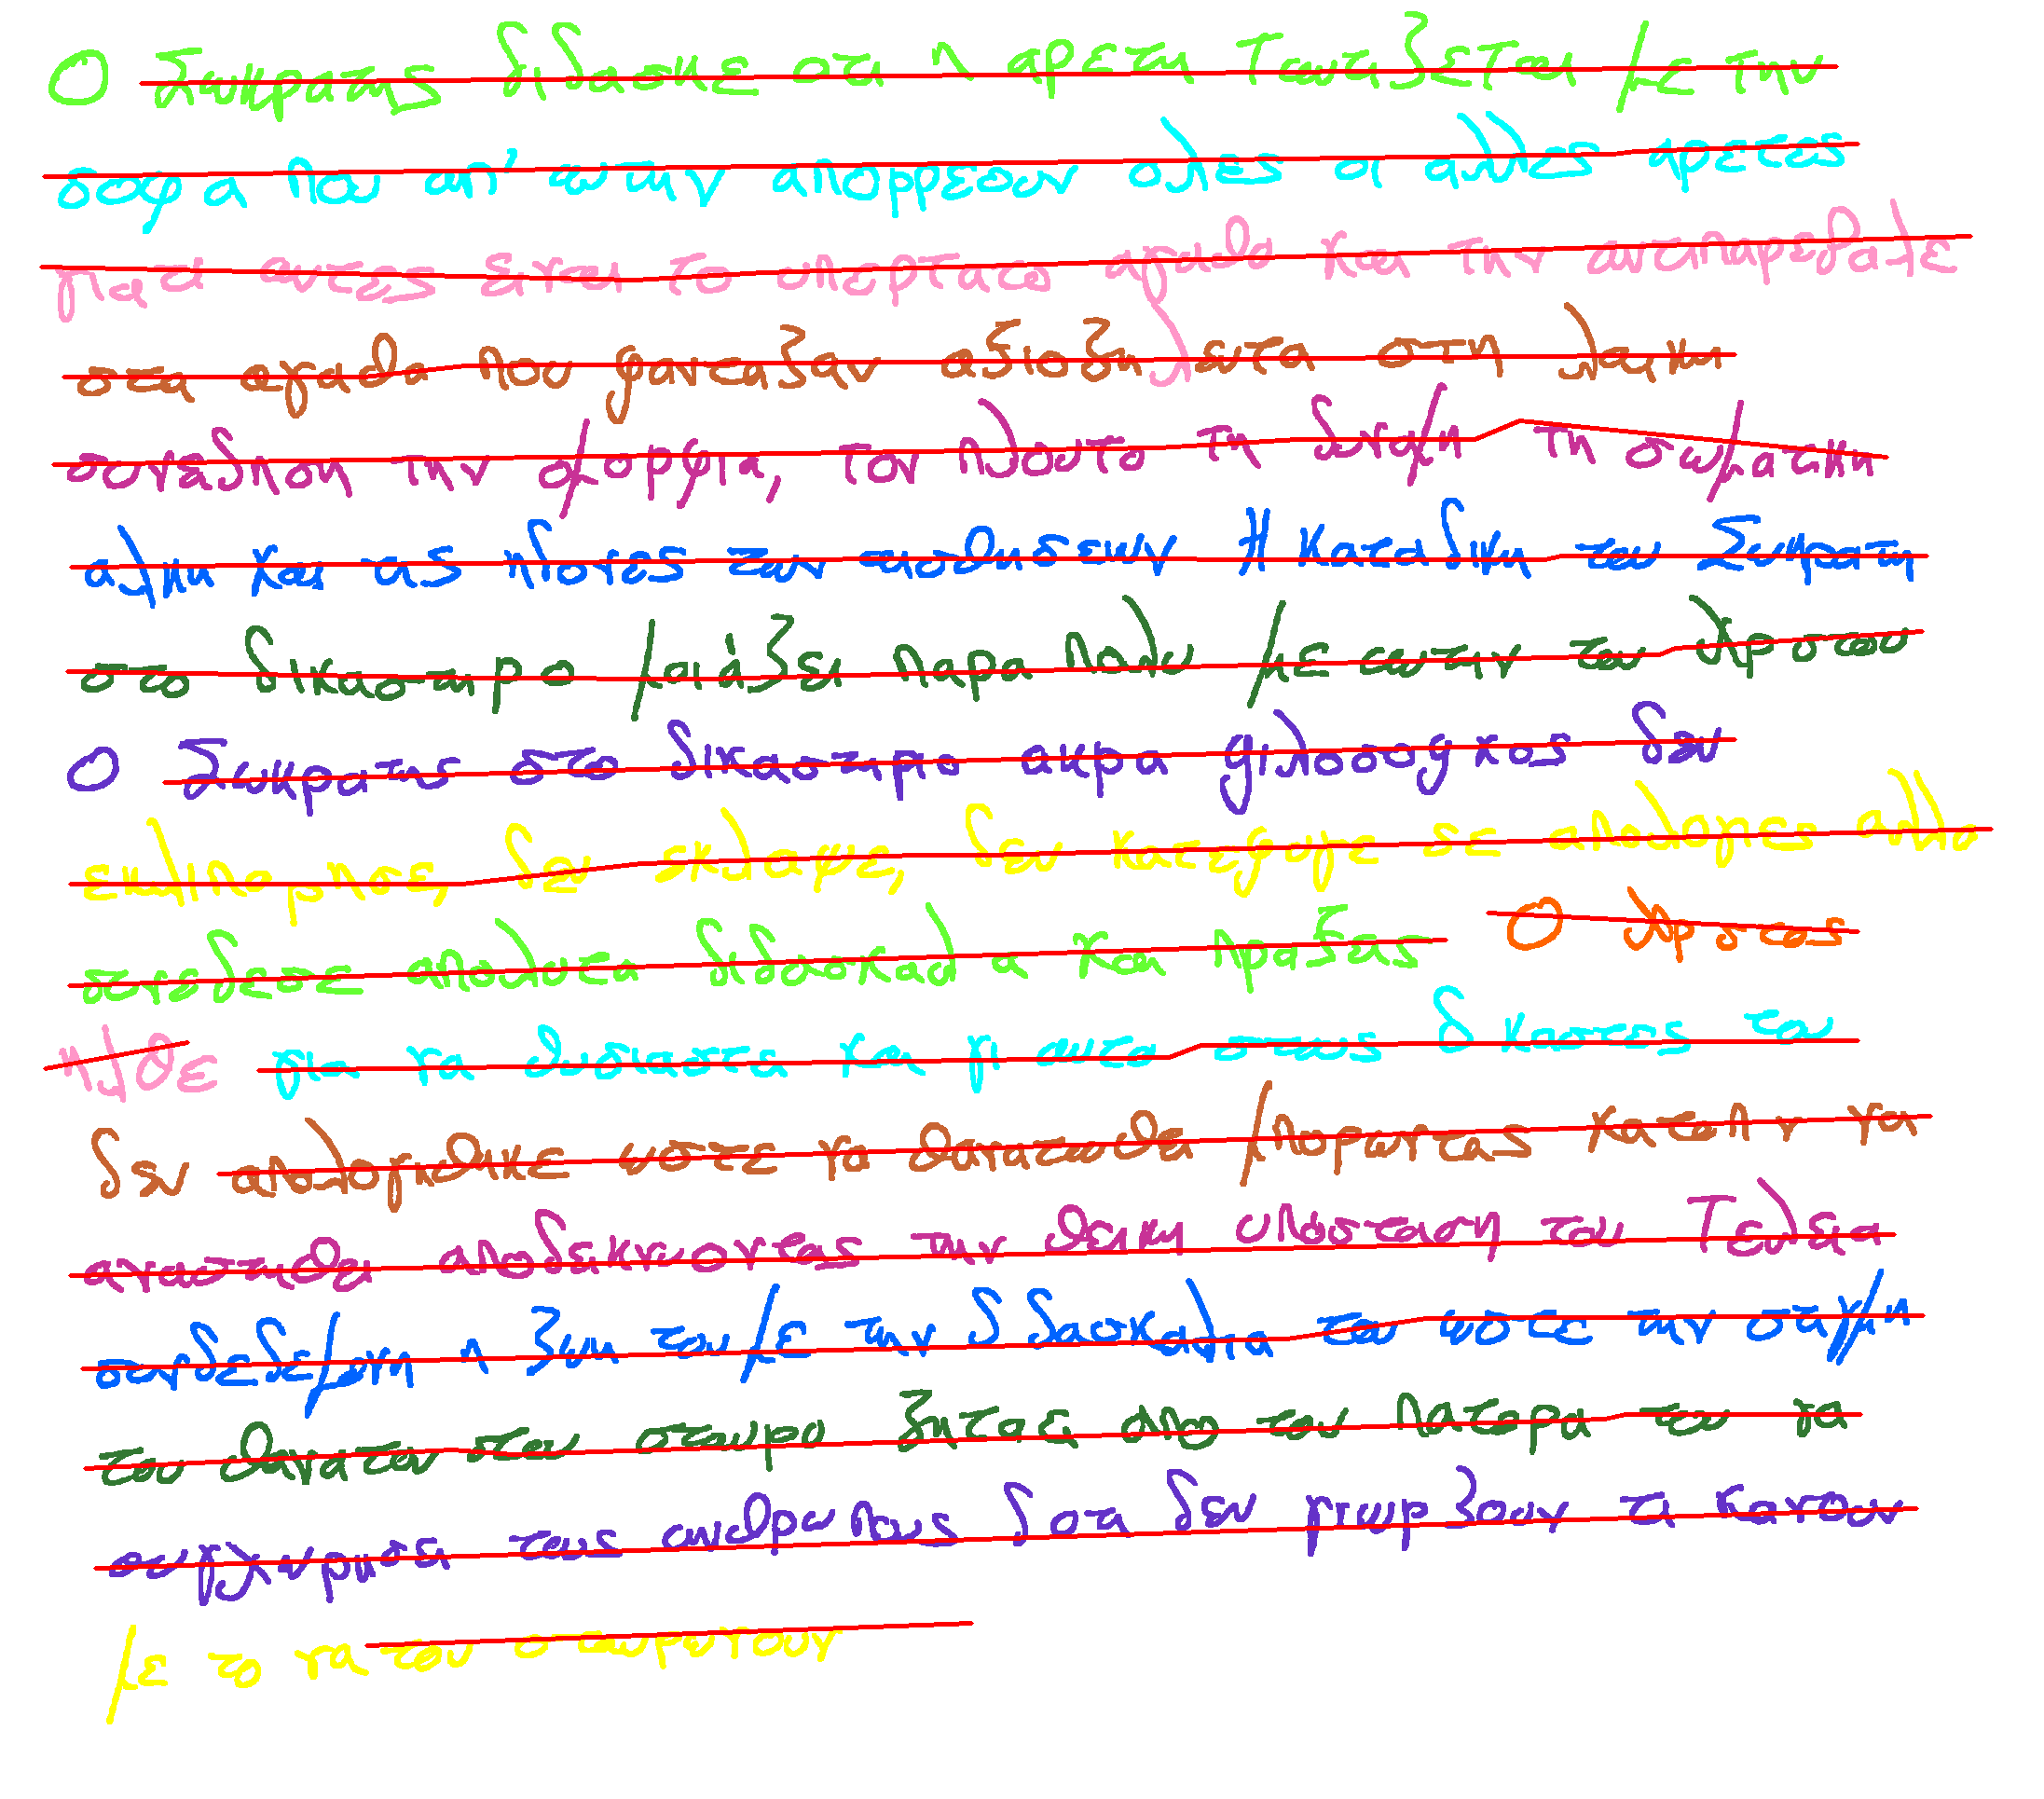 Ο Σωκρατης διδασκε οτι η αρετη ταυτιζεται με την
σοφια που απ' αυτην απορρεουν ολες οι αλλες αρετες
γιατι αυτες ειναι το υπερτατο αγαθο και την αντιπαρεβαλε
στα αγαθα που φανταζαν αξιοζηλευτα στη λαικη
συνειδηση την ομορφια, τον πλουτο τη δυναμη τη σωματικη
αλκη και τις ηδονες των αισθησεων Η καταδικη του Σωκρατη
στο δικαστηριο μοιάζει παρα πολυ με αυτην του Χριστου
Ο Σωκρατης στο δικαστηριο ακρα φιλοσοφικος δεν
εκλιπαρησε, δεν εκλαψε, δεν κατεφυγε σε απολογιες αλλα
συνεδεσε απολυτα διδασκαλια και πραξεις Ο Χριστος
ηλθε για να θυσιαστει και γι αυτο στους δικαστες του
δεν απολογηθηκε ωστε να θανατωθει μπορωντας κατοπιν να
αναστηθει αποδεικνυοντας την θεικη υπόσταση του Τελεια
συνδεδεμενη η ζωη του με την διδασκαλια του ωστε την στιγμη
του θανατου του στο σταυρο ζηταει απο τον πατερα του να
συγχωρησει τους ανθρωπους διοτι δεν γνωριζουν τι κανουν
με το να τον σταυρωνουν